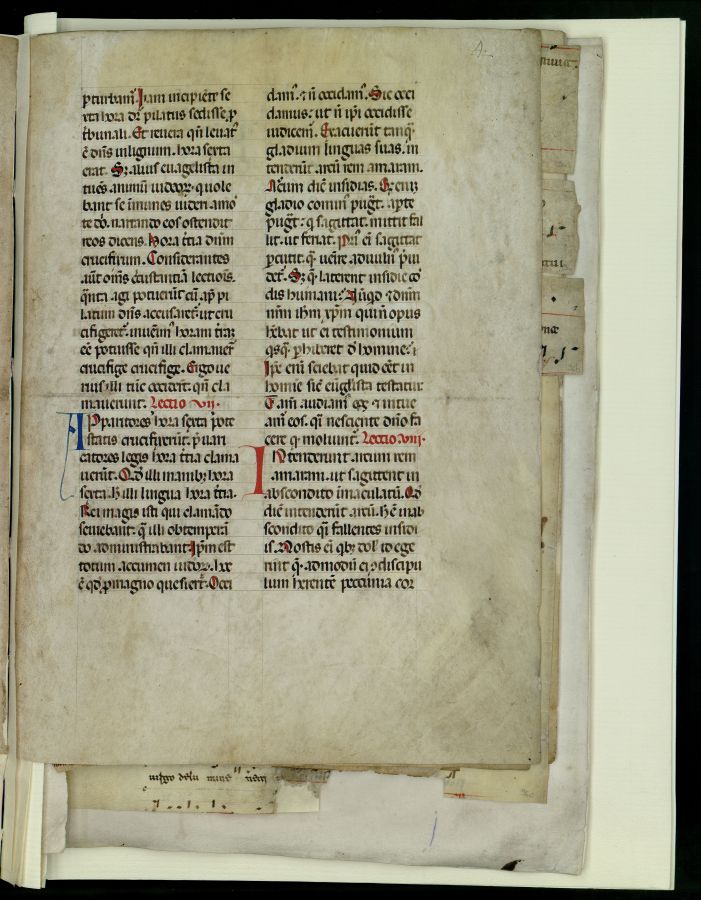 ꝑturbant̉. Iam incipiēte se
xta hora dr̄ pilatus sedisse ꝓ
tͥbunali. Et reuera qn̄ leuatꝰ
ē dn̄s in lignum. hora sexta
erat. Sꝫ aliuis euāgelista in
tuēs animū iudeoꝝ. quole
bant se īmunes uideri a mo
te dn̄i. narrando eos ostendit
reos dicens. hora tͥcia dn̄m
crucifixum. Considerantes
aūt om̄s cͥcustantiā lectiōis.
q̄nta agi potuerūt cū apͩ pi
latum dn̄s accusaret̉. ut cru
cifigeret̉. inuenim̉ horam tͥciā
eē potuisse qn̄ illi clamauer̄t
crucifige crucifige. Ergo ue
rius illi tūc occider̄t. qn̄ cla
mauerunt. Lectio vii.
Apparitores hora sexta pote
statis crucifixerūt. p̄uari
catores legis hora tͥcia clama
uerūt. Qd̓ illi manibꝫ hora
sexta. h̓ illi lingua hora tͥcia.
Rei magis isti qui clamādo
seuiebant. q̄ illi obtemperā
do administrabant. Ip̄m est
totum accumen iudeoꝝ. hoc
ē qd̓ ꝓ magno quesiert̄. Occi
dam̉. ⁊ n̄ occidam̉. Sic occi
damus: ut n̄ ip̄i occidisse
iudicem̉. Exacuerūt tanq̄
gladium linguas suas. in
tenderūt arcū rem amaram.
gladio comin̉ pugt̄. aꝑte
pugt̄: q̄ sagittat. mittit fal
lit. ut feriat. Pri̓ ei sagittat
ꝑcutit. q̄ uēire ad uuln̉ p̄ui
det̉. Sꝫ q̄ laterent insidie cō
dis humani? Nūqͥd ⁊ dn̄m
nr̄m ih̄m xp̄m qui n̄ opus
hēbat ut ei testimonium
qͥsqͣ ꝑhiberet d̓ homine?
Ip̄e eni sciebat quid eēt in
homīe sic̄ euḡlista testatur.
Tam̄ audiam̉ eꝯ ⁊ intue
am̉ eos. qͣ nesciente dn̄o fa
cere q̄ moliunt̉. Lectio viii.
Intenderunt arcum rem
amaram. ut sagittent in
abscondito īmaculatū. Qd̓
dic̄ intenderūt arcū. h̓ ē in ab
scondito q̄ fallentes insidi
is. Nostis ei qͥbꝫ dol̓ id ege
rint q̄ admodū ei9 discipu
lum herentē peccunia cor